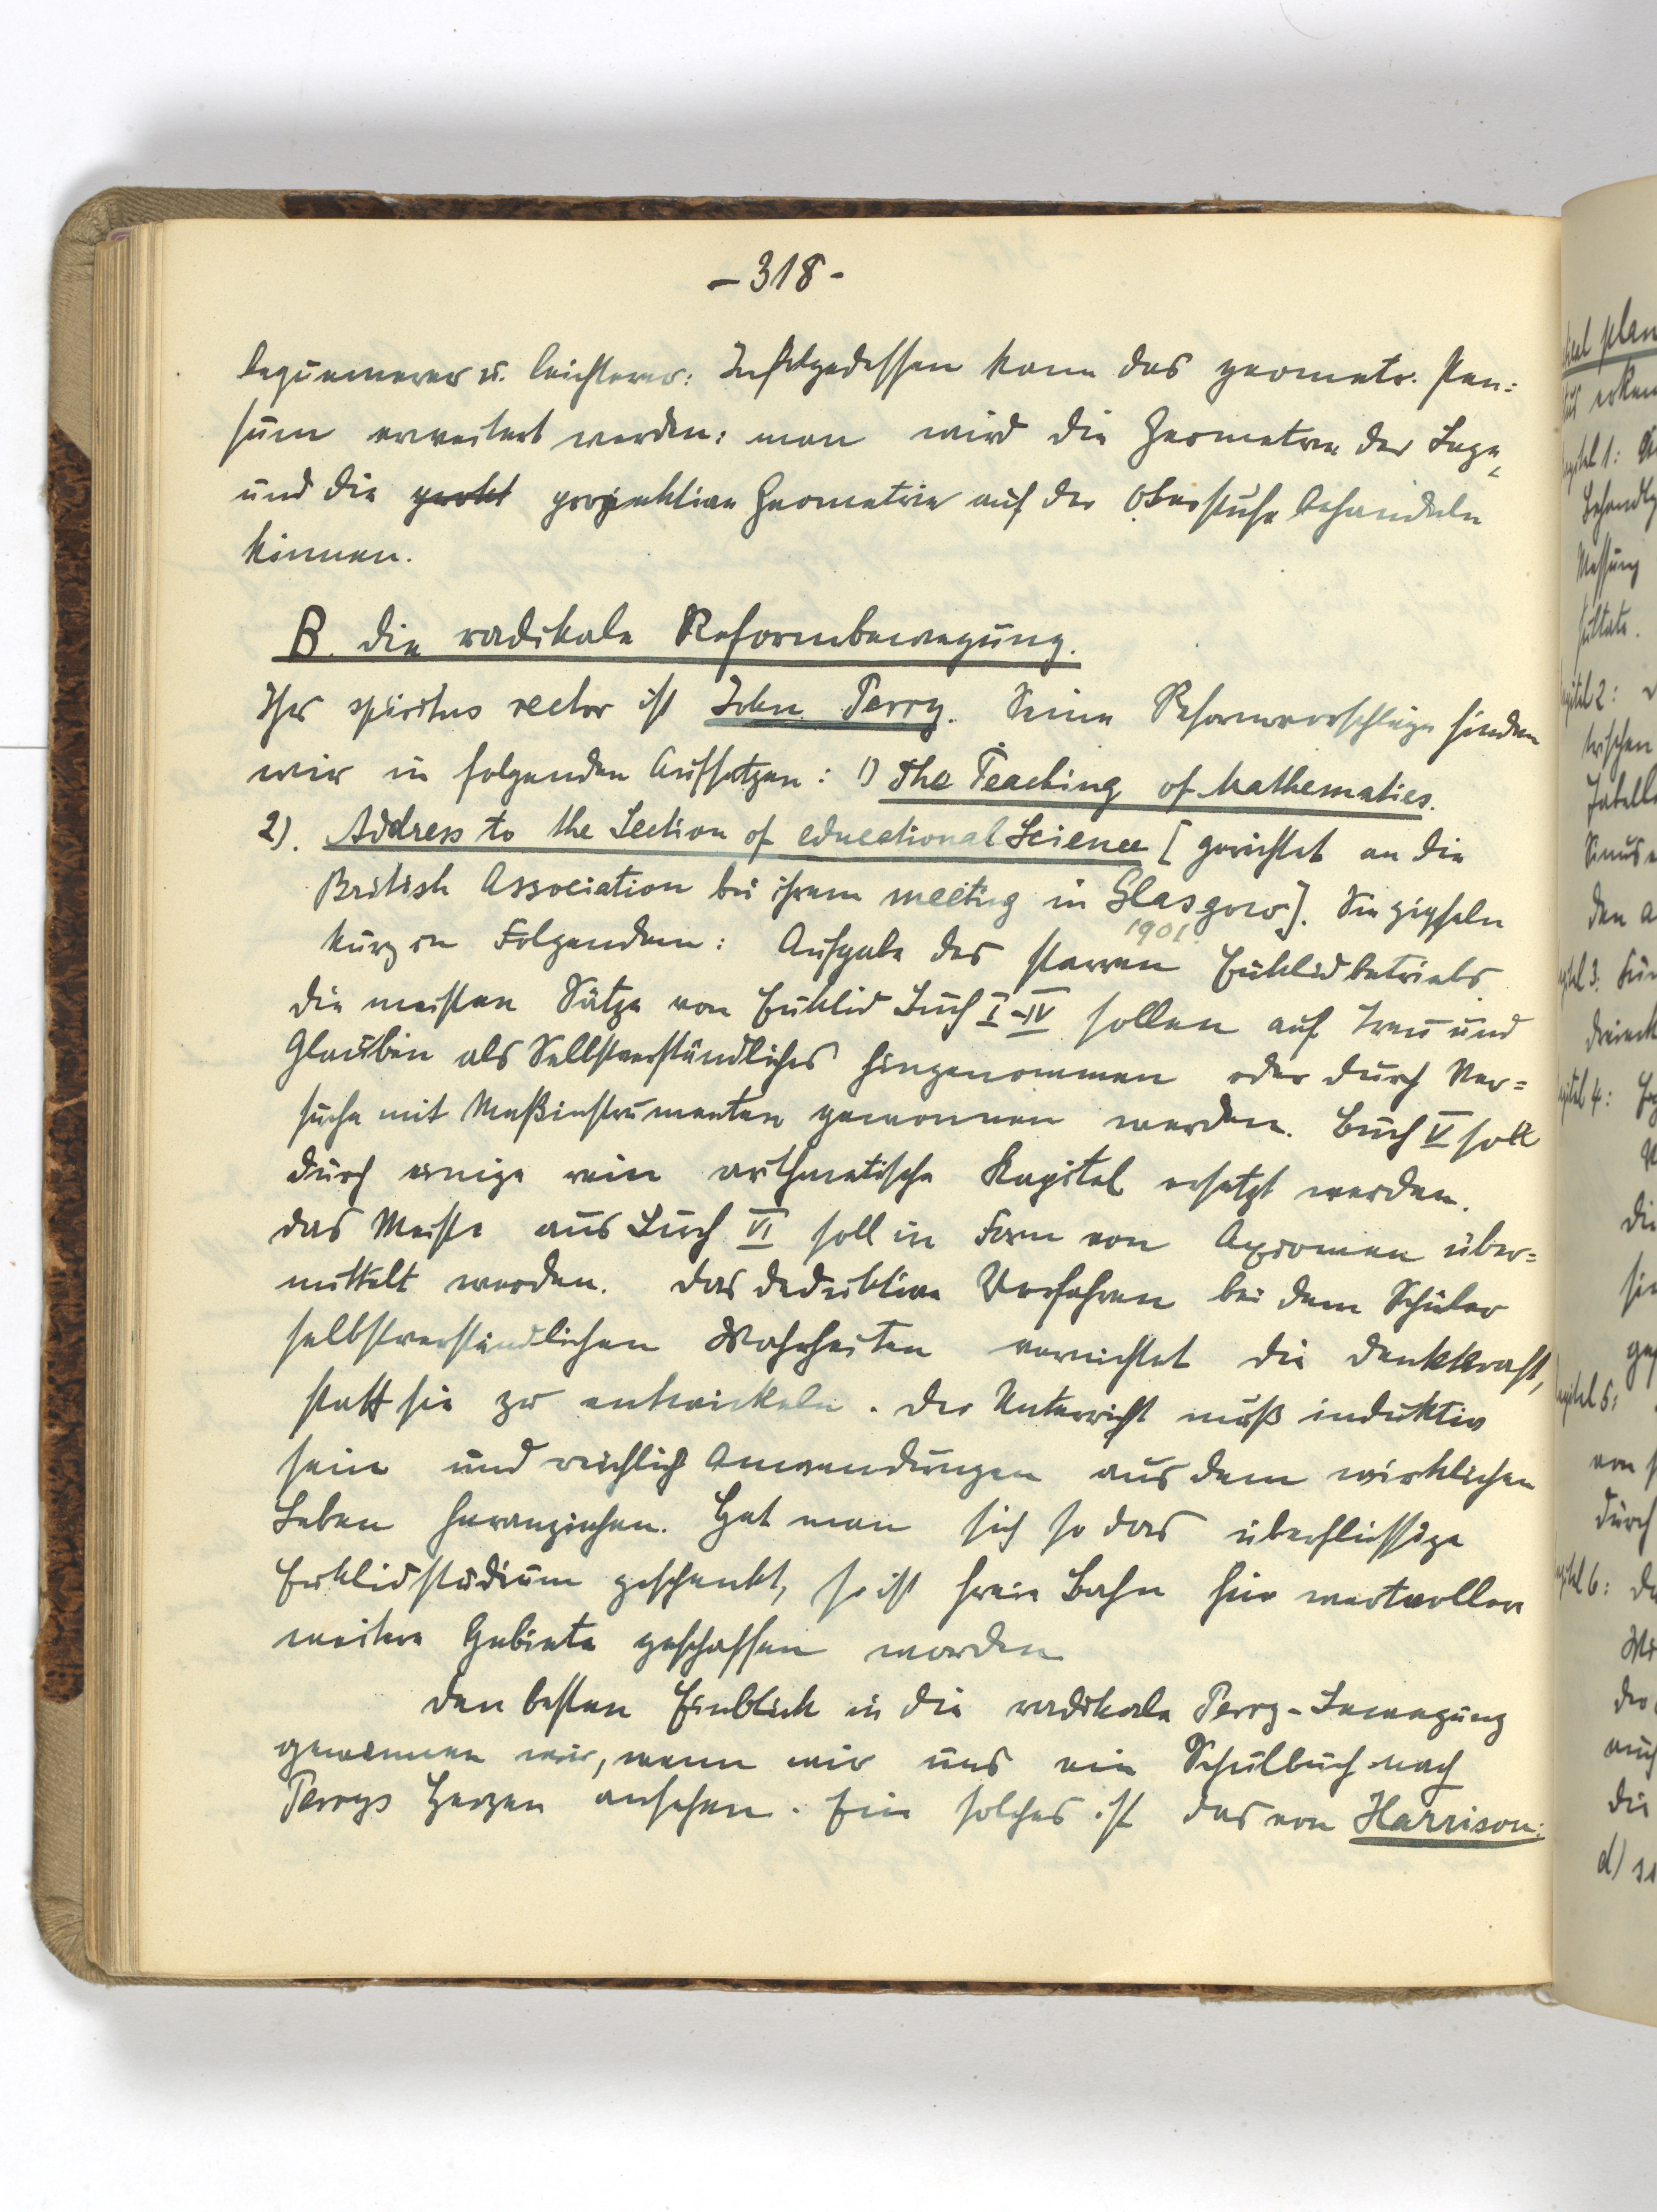 - 318 -
bequemerer u. leichterer: Infolgedessen kann das geometr. Pen=
sum erweitert werden: man wird die Geometrie der Lage
und die projektive Geometrie auf der Oberstufe behandeln
können.
B. die radikale Reformbewegung.
Ihr spiritus rector ist John Perry. Seine Reformvorschläge finden
wir in folgenden Aufsätzen: 1) The Teaching of Mathematics.
2). Address to the Section of educational Science [gerichtet an die
British Association bei ihrem meeting in Glasgow]. Sie gipfeln
1901
kurz in Folgendem: Aufgabe des starren Euklidbetriebs.
die meisten Sätze von Euklid Buch I-IV sollen auf Treu und
Glauben als Selbstverständliches hingenommen oder durch Ver=
suche mit Meßinstrumenten gewonnen werden. Buch V soll
durch einige rein arithmetische Kapitel ersetzt werden.
das Meiste aus Buch VI soll in Form von Axiomen über=
mittelt werden. das deduktive Verfahren bei dem Schüler
selbstverständlichen Wahrheiten vernichtet die Denkkraft,
statt sie zu entwickeln. der Unterricht muß induktiv
sein und reichlich Anwendungen aus dem wirklichen
Leben heranziehen. Hat man sich so das überflüssige
Euklidstudium geschenkt, so ist freie Bahn für wertvollere
weitere Gebiete geschaffen worden
den besten Einblick in die radikale Perry-Bewegung
gewinnen wir, wenn wir uns ein Schulbuch nach
Perrys Herzen ansehen. Ein solches ist das von Harrison: